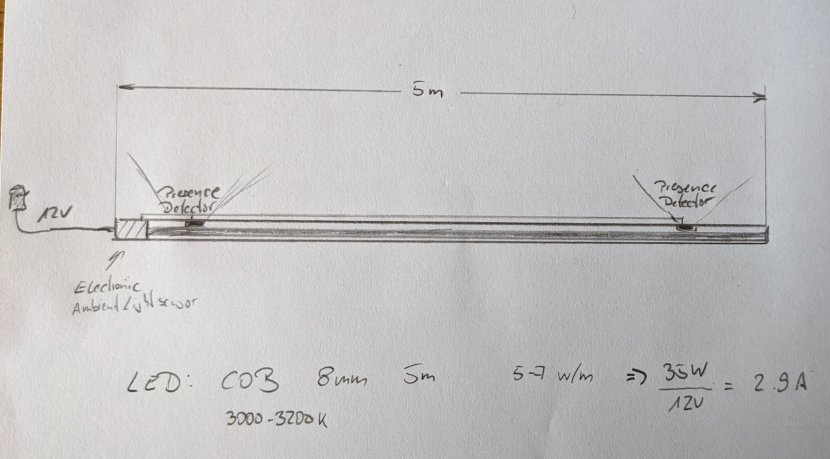 5m
Presence
Detector
Presence
Detector
12V
Electronic
Ambient Light sensor
LED: COB 8mm 5m 5-7 w/m => 35W / 12V = 2.9A
3000-3200K